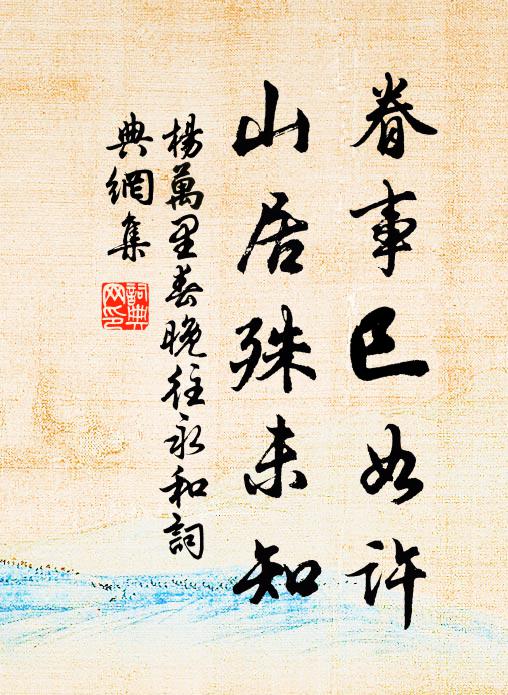 春事已如許
山居殊未知
楊萬里春晚往永和詞
典網集
詞典
网印